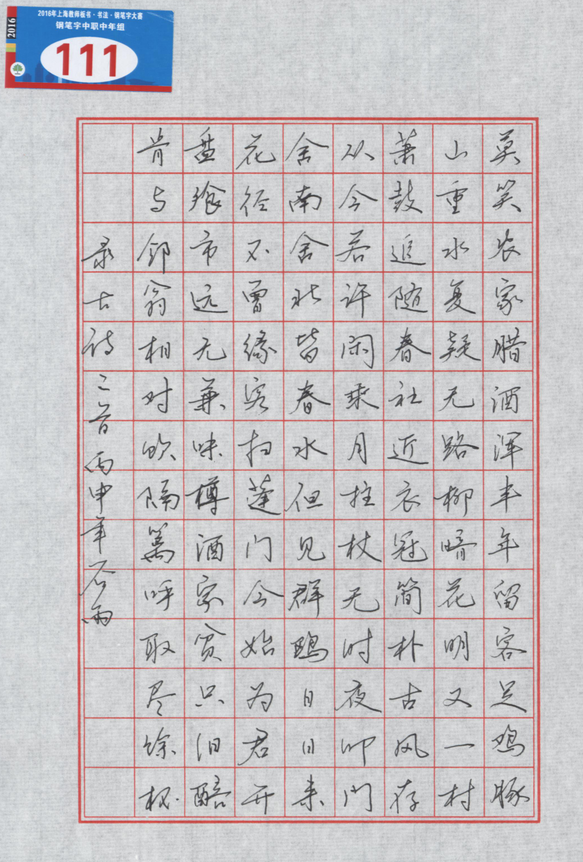 2016
2016年上海教师板书·书法·钢笔字大赛
钢笔字中职中年组
111
莫笑农家腊酒浑丰年留客足鸡豚
山重水复疑无路柳暗花明又一村
萧鼓追随春社近衣冠简朴古风存
从今若许闲乘月拄杖无时夜叩门
舍南舍北皆春水但见群鸥日日来
花径不曾缘客扫蓬门今始为君开
盘飧市远无兼味樽酒家贫只旧醅
肯与邻翁相对饮隔篱呼取尽馀杯
录古诗二首丙申年